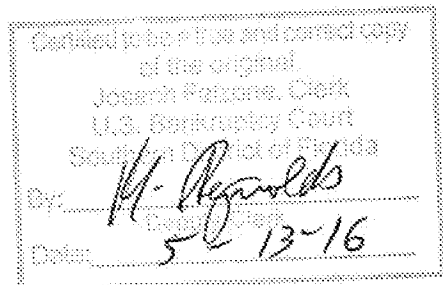 Certified to be a true and correct copy
of the original.
Joseph Falzone, Clerk
U.S. Bankruptcy Court
Southern District of Florida
By: M. Reynolds
Deputy Clerk
Date: 5-13-16